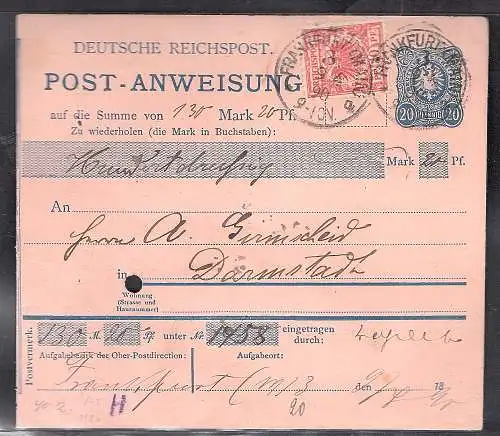 DEUTSCHE REICHSPOST.
POST-ANWEISUNG
auf die Summe von 130 Mark 20 Pf.
Zu wiederholen (die Mark in Buchstaben):
Hundertdreißig Mark 20 Pf.
An
Herrn A.
in Darmstadt
Wohnung
(Strasse und
Hausnummer)
Postvermerk.
130 M. 20 Pf. unter Nr. 1958 eingetragen
durch:
Aufgabebezirk der Ober-Postdirection: Aufgabeort:
Frankfurt (M) 3 den 18
20
H
FRANKFURT (MAIN)
9-10V.
FRANKFURT (MAIN)
20 PFENNIG 20